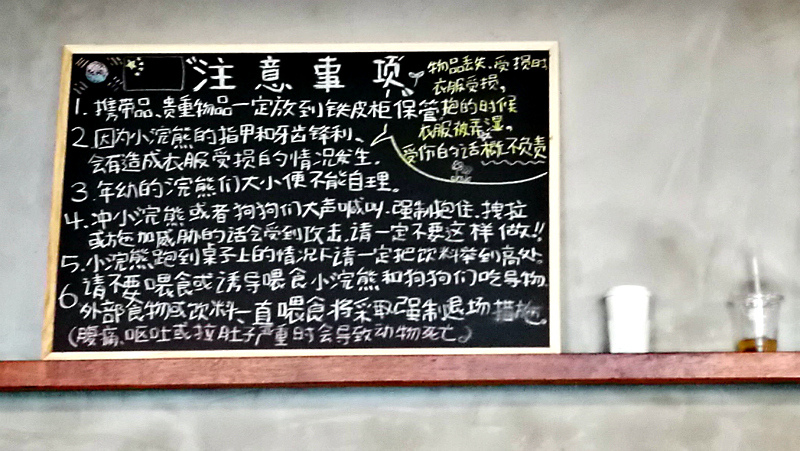 注意事项
物品丢失、受损时
衣服受损,
抱的时候
衣服被弄湿,
受伤的话概不负责
1. 携带品、贵重物品一定放到铁皮柜保管
2. 因为小浣熊的指甲和牙齿锋利、
会有造成衣服受损的情况发生.
3. 年幼的浣熊们大小便不能自理。
4. 冲小浣熊或者狗狗们大声喊叫.强制抱住.拽拉
或施加威胁的话会受到攻击.请一定不要这样做!!
5. 小浣熊跑到桌子上的情况下请一定把饮料举到高处
6. 请不要喂食或诱导喂食小浣熊和狗狗们吃导物.
外部食物或饮料一直喂食.将采取强制退场措施.
(腹痛.呕吐或拉肚子严重时会导致动物死亡)